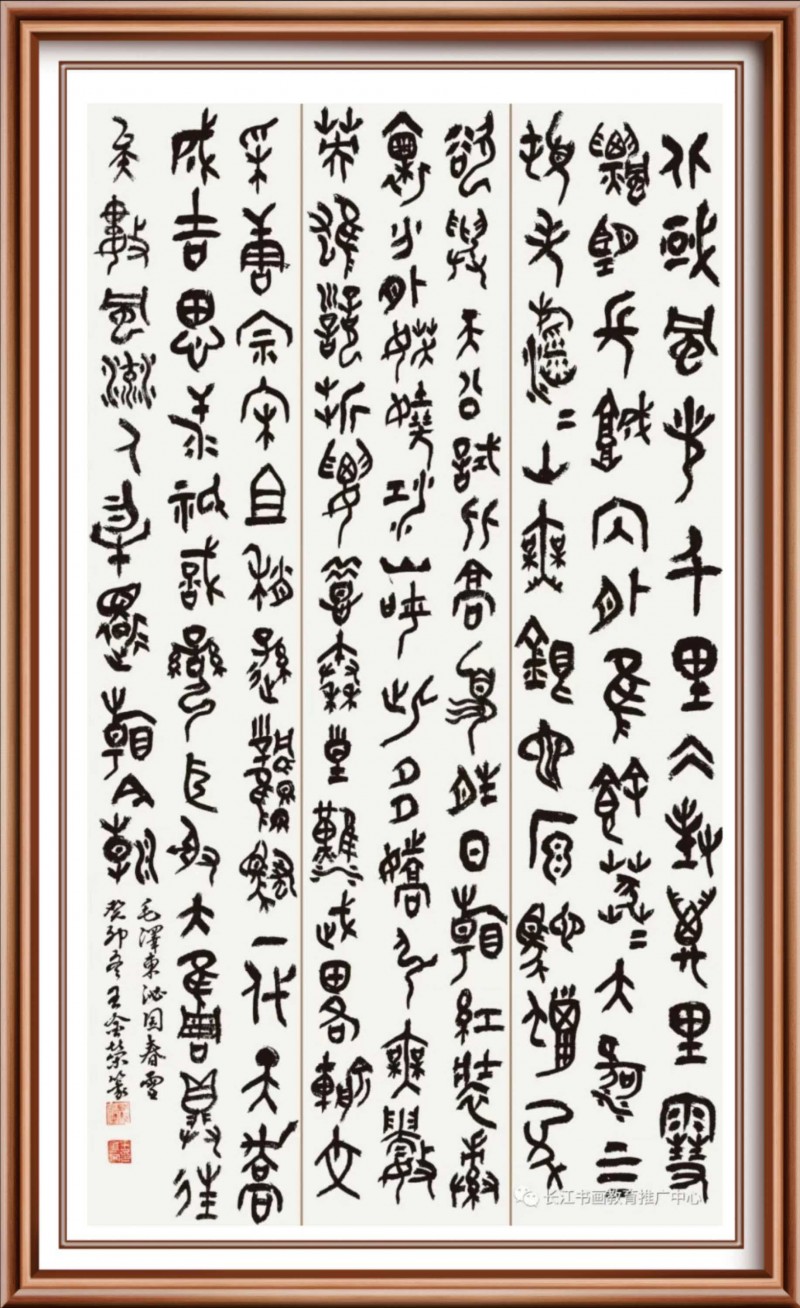 北國風光千里冰封萬里雪
飄望長城內外惟餘莽〻大河上下
頓失滔〻山舞銀蛇原馳蠟象
欲與天公試比高須晴日看紅裝素
裹分外妖嬈江山如此多嬌引無數
英雄競折腰惜秦皇漢武略輸文
采唐宗宋祖稍遜風騷一代天驕
成吉思汗祇識彎弓射大雕俱往
矣數風流人物還看今朝
毛澤東沁園春雪
癸卯冬王金榮篆
长江书画教育推广中心